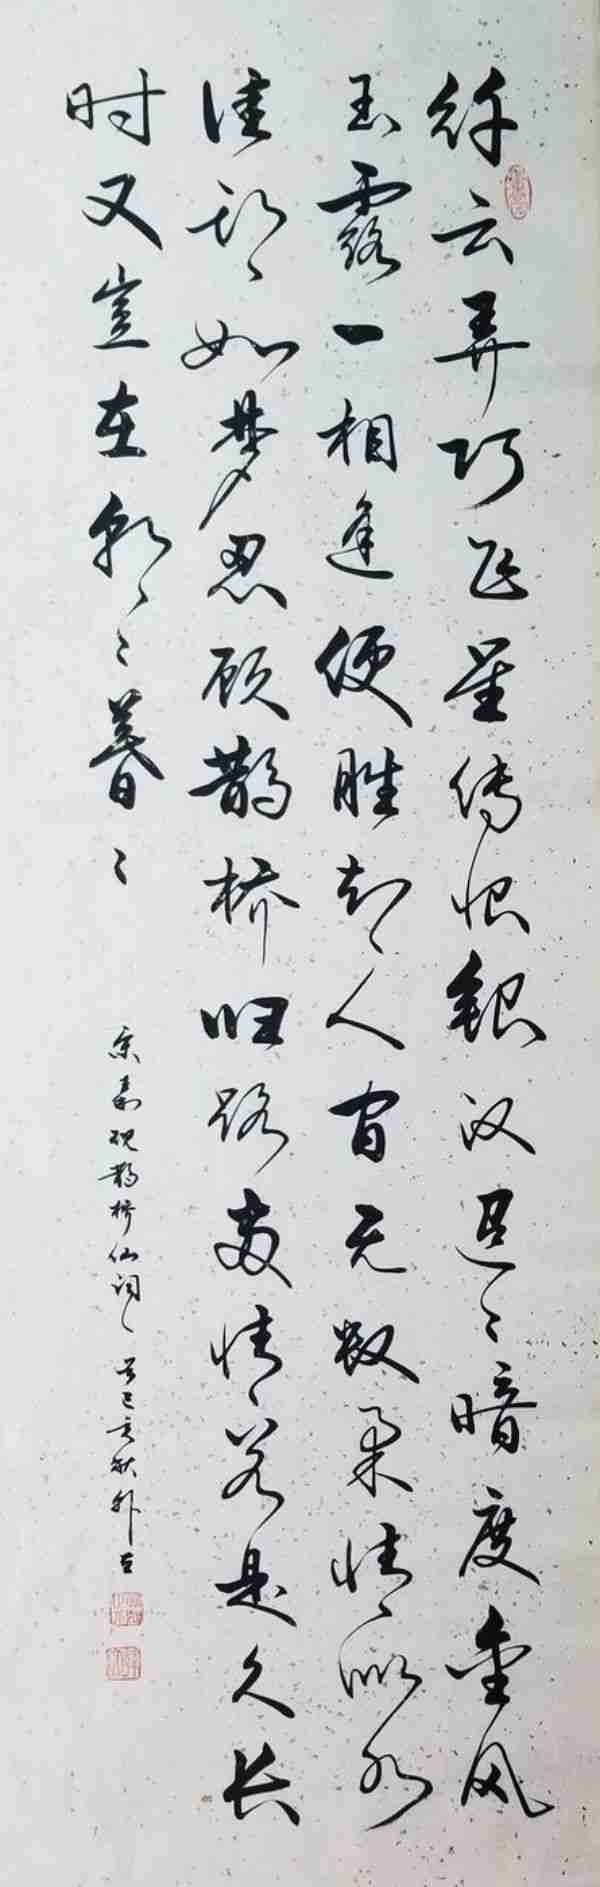 纤云弄巧飞星传恨银汉迢〻暗度金风
玉露一相逢便胜却人间无数柔情似水
佳期如梦忍顾鹊桥归路两情若是久长
时又岂在朝〻暮〻
宋秦观鹊桥仙词 己亥秋